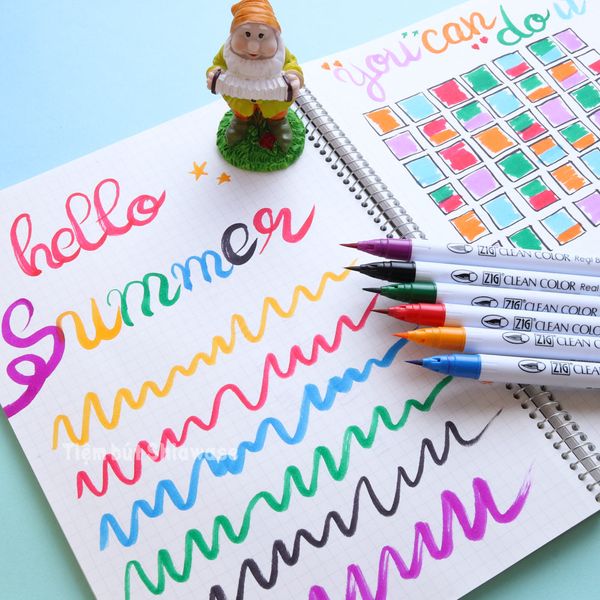 you can do it
hello
Summer
ZIG CLEAN COLOR Real B
ZIG CLEAN COLOR Real
ZIG CLEAN COLOR
ZIG CLEAN COLOR
ZIG CLEAN COLO
ZIG CLEAN
Tiệm bút Shiawase